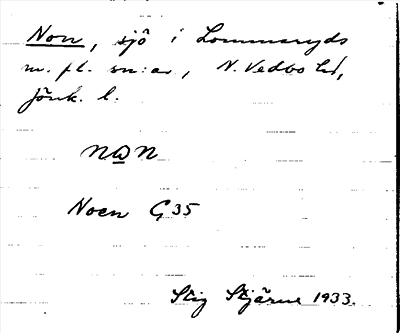 Non, sjö i Lommaryds
m. fl. sn:ar, N. Vedbo hd,
Jönk. l.
nωn
Noen G35
Stig Stjärne 1933.